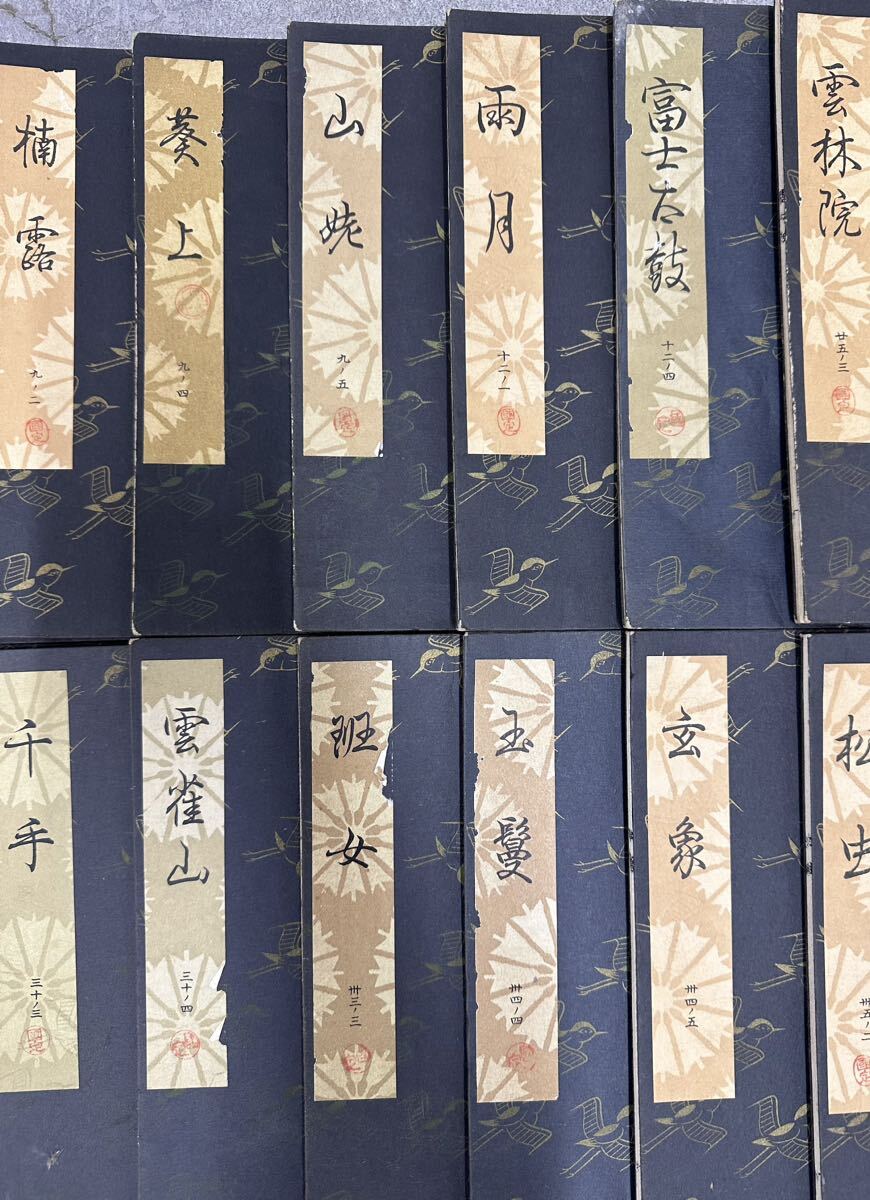 楠露
九ノ二
葵上
九ノ四
山姥
九ノ五
雨月
十二ノ一
富士太鼓
十二ノ四
雲林院
廿五ノ三
千手
三十ノ三
雲雀山
三十ノ四
班女
卅三ノ三
玉鬘
卅四ノ四
玄象
卅四ノ五
松虫
卅五ノ二